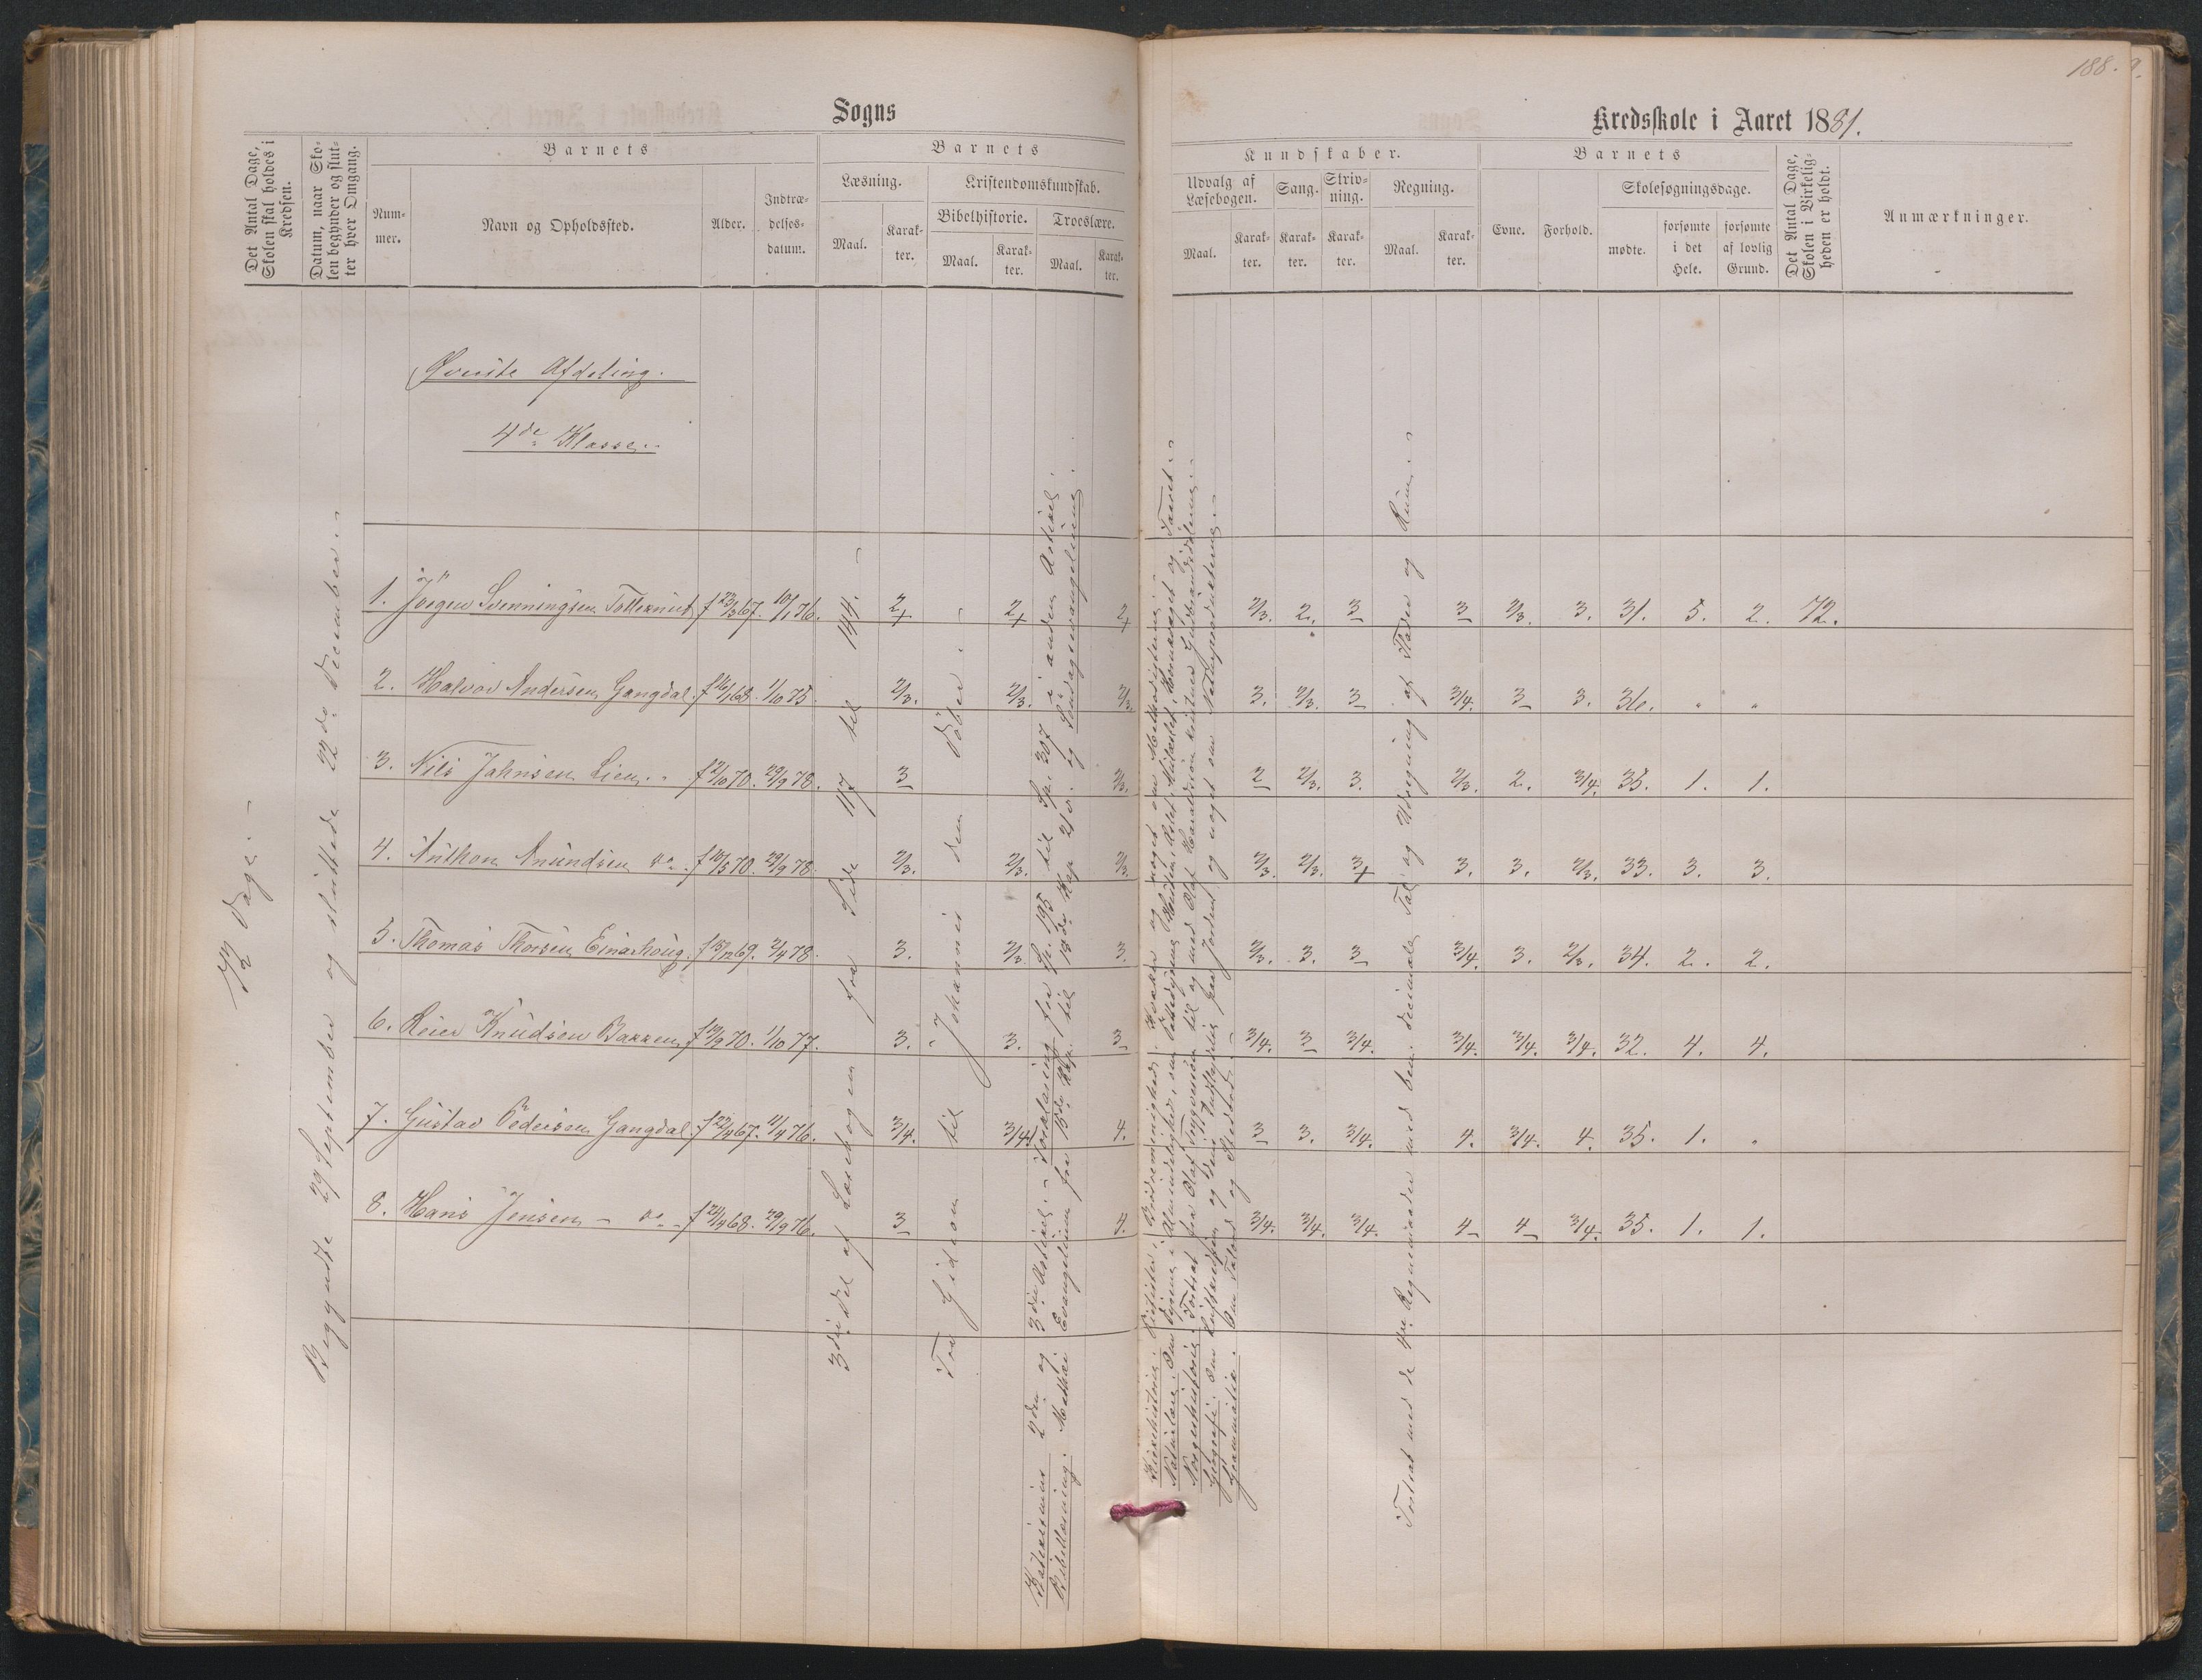 188.
Sogns
Kredsskole i Aaret 1881.
Det Antal Dage, Skolen skal holdes i Kredsen.
Datum, naar Skolen begynder og slutter hver Omgang.
Barnets
Nummer.
Navn og Opholdssted.
Alder.
Indtrædelsesdatum.
Barnets
Læsning.
Maal.
Karakter.
Kristendomskundskab.
Bibelhistorie.
Maal.
Karakter.
Troeslære.
Maal.
Karakter.
Kundskaber.
Udvalg af Læsebogen.
Maal.
Karakter.
Sang.
Karakter.
Skrivning.
Karakter.
Regning.
Maal.
Karakter.
Barnets
Evne.
Forhold.
Skolesøgningsdage.
mødte.
forsømte i det Hele.
forsømte af lovlig Grund.
Det Antal Dage, Skolen i Virkeligheden er holdt.
Anmærkninger.
Øverste Afdeling.
4de Klasse.
72 Dage.
Begyndte 29 September og sluttede 22de December.
1. Jörgen Svenningsen Tolleknut f 23/3 67. 10/1 76. 2+ 2+ 2+ 2/3. 2. 3 3 2/3. 3. 31. 5. 2. 72.
2. Halvor Andersen Gangdal f 16/1 68. 1/10 75. 2/3. 2/3. 2/3. 3. 2/3. 3 3/4. 3 3. 36. " "
3. Nils Jahnsen Lien f 2/10 70. 29/9 78. 3 2/3. 2 2/3. 3. 2/3. 2. 3/4. 35. 1. 1.
4. Anthon Anundsen do f 10/5 70. 29/9 78. 2/3. 2/3. 2/3. 2/3. 2/3. 3+ 3. 3. 2/3. 33. 3. 3.
5. Thomas Thorsen Einarhoug f 15/12 69. 2/4 78. 3. 2/3. 3. 2/3. 3. 3 3/4. 3. 2/3. 34. 2. 2.
6. Reier Knudsen Bakken f 19/9 70. 1/10 77. 3. 3. 3 3/4. 3 3/4. 3/4. 3/4. 3/4. 32. 4. 4.
7. Gustav Pedersen Gangdal f 22/4 67. 11/4 76. 3/4. 3/4. 4. 3 3. 3/4. 4. 3/4. 4. 35. 1. "
8. Hans Jensen - do - f 24/4 68. 29/9 76. 3 4. 3/4. 3/4. 3/4. 4 4 3/4. 35. 1. 1.
3die Del af Læsebogen fra Side 117 til 144.
Fra Gideon til Johannes den Döber.
Katekismus 2den og 3die Artikel. Forklaring fra Sp. 195 til Sp. 307 i anden Artikel.
Bibellæsning. Mathæi Evangelium fra 15de Kap. til 18de Kap. 21 v. og Söndagsevangelierne.
Kirkehistorie. Pietister. Brödremenighed. Kvækere og noget om Methodisterne.
Naturlære. Om Dyrene i Almindelighed, om Pattedyrene
Norgeshistorie. Fortsat fra Olaf Trygvesön til og med Olaf Haraldsön
Geografi. Om Luftkredsen
Grammatik. Om Talord og Stedord.
Fortsat med de 4re Regnemaader med ben. decimale Tal og Udregning af Flader og Rum.